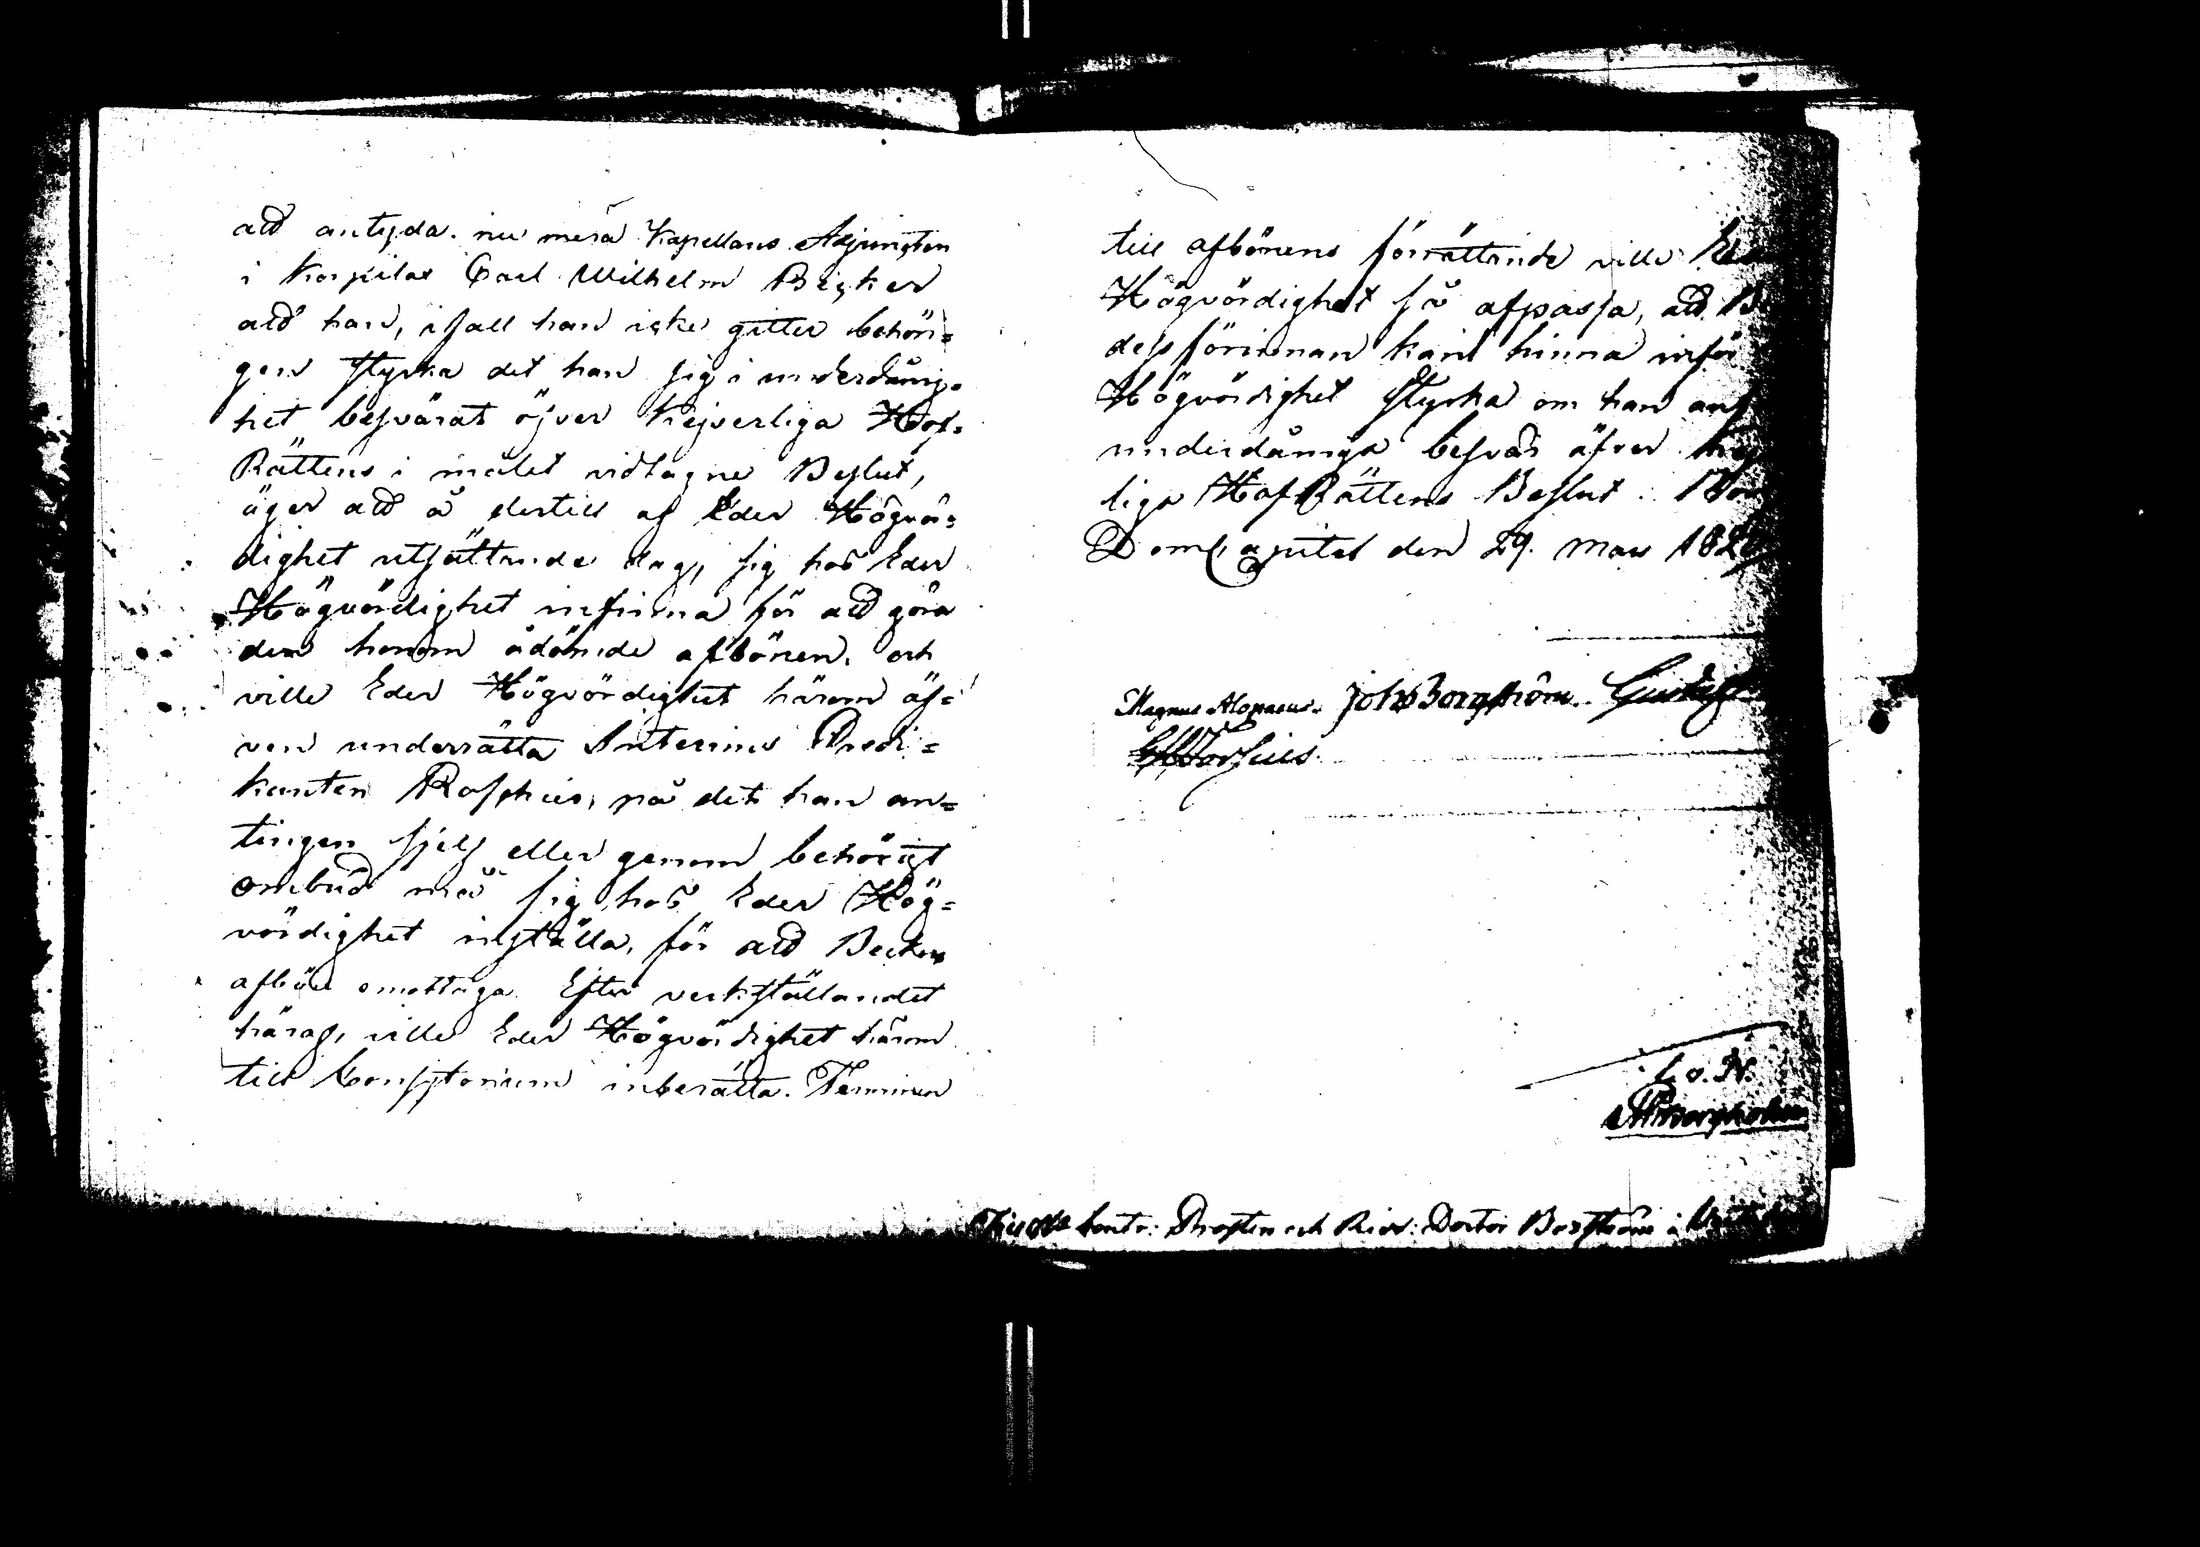 att antyda nu mera Kapellans Adjuncten
i Kaspilas Carl Wilhelm Becker
att han, ifall han icke gitter behöri=
gen styrka det han sig i underdånig=
het besvärat öfver Kejserliga Hof=
Rättens i målet vidtagne Beslut,
äger att å dertill af Eder Högvör=
dighet utsättande dag, sig hos Eder
Högvördighet infinna för att göra
den honom ådömde afbönen, och
ville Eder Högvördighet härom äf=
ven underrätta Interims Predi=
kanten på det han an=
tingen sjelf eller genom behörigt
ombud må sig hos Eder Hög=
vördighet inställa, för att Beckers
afbön emottaga. Efter verkställandet
häraf, ville Eder Högvördighet härom
till Consistorium inberätta. Terminen
till afbönens förrättande ville
Högvördighet så afpassa, att
dessförinnan kan hinna inför
Högvördighet styrka om han
underdåniga besvär öfver
liga HofRättens Beslut.
DomCapitel den 29. Maii
Magnus Alopaeus. Joh. Borgström. Gustaf
L. o. N.
Contr: Prosten och Ridd: Doctor i